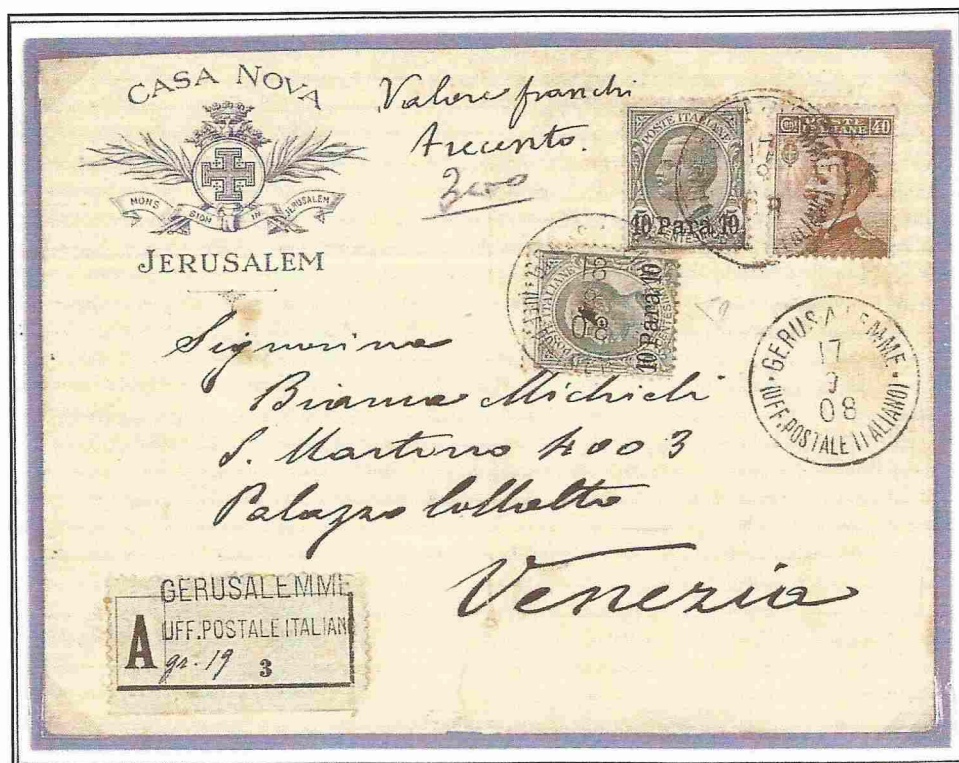 CASA NOVA
MONS SION IN JERUSALEM
JERUSALEM
Valore franchi
trecento.
Zero
POSTE ITALIANE
10 Para 10
POSTE ITALIANE 40
ITALIANE
10 Para 10
18
9
08
GERUSALEMME
17
9
08
(UFF. POSTALE ITALIANO)
Signorina
Bianca Michieli
S. Martino 4003
Palazzo
Venezia
GERUSALEMME
UFF. POSTALE ITALIAN
A
gr. 19 3